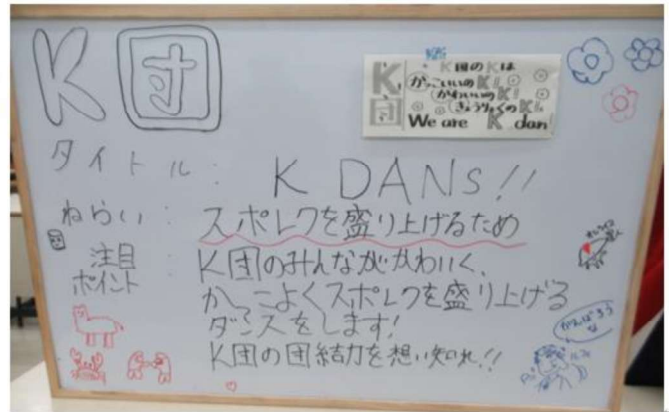 K団
K団
K団のKは
かっこいいのK!
かわいいのK!
きょうりょくのK!
We are K dan!
タイトル: K DANs!!
ねらい: スポレクを盛り上げるため
注目ポイント: K団のみんながかわいく、
かっこよくスポレクを盛り上げる
ダンスをします!
K団の団結力を想い知れ!!
がんばろうな